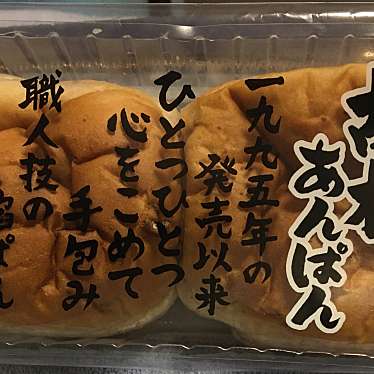 あんぱん
一九九五年の
発売以来
ひとつひとつ
心をこめて
手包み
職人技の